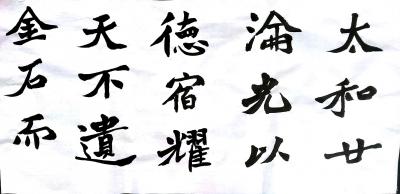 太和廿
淪光以
德宿耀
天不遺
金石而